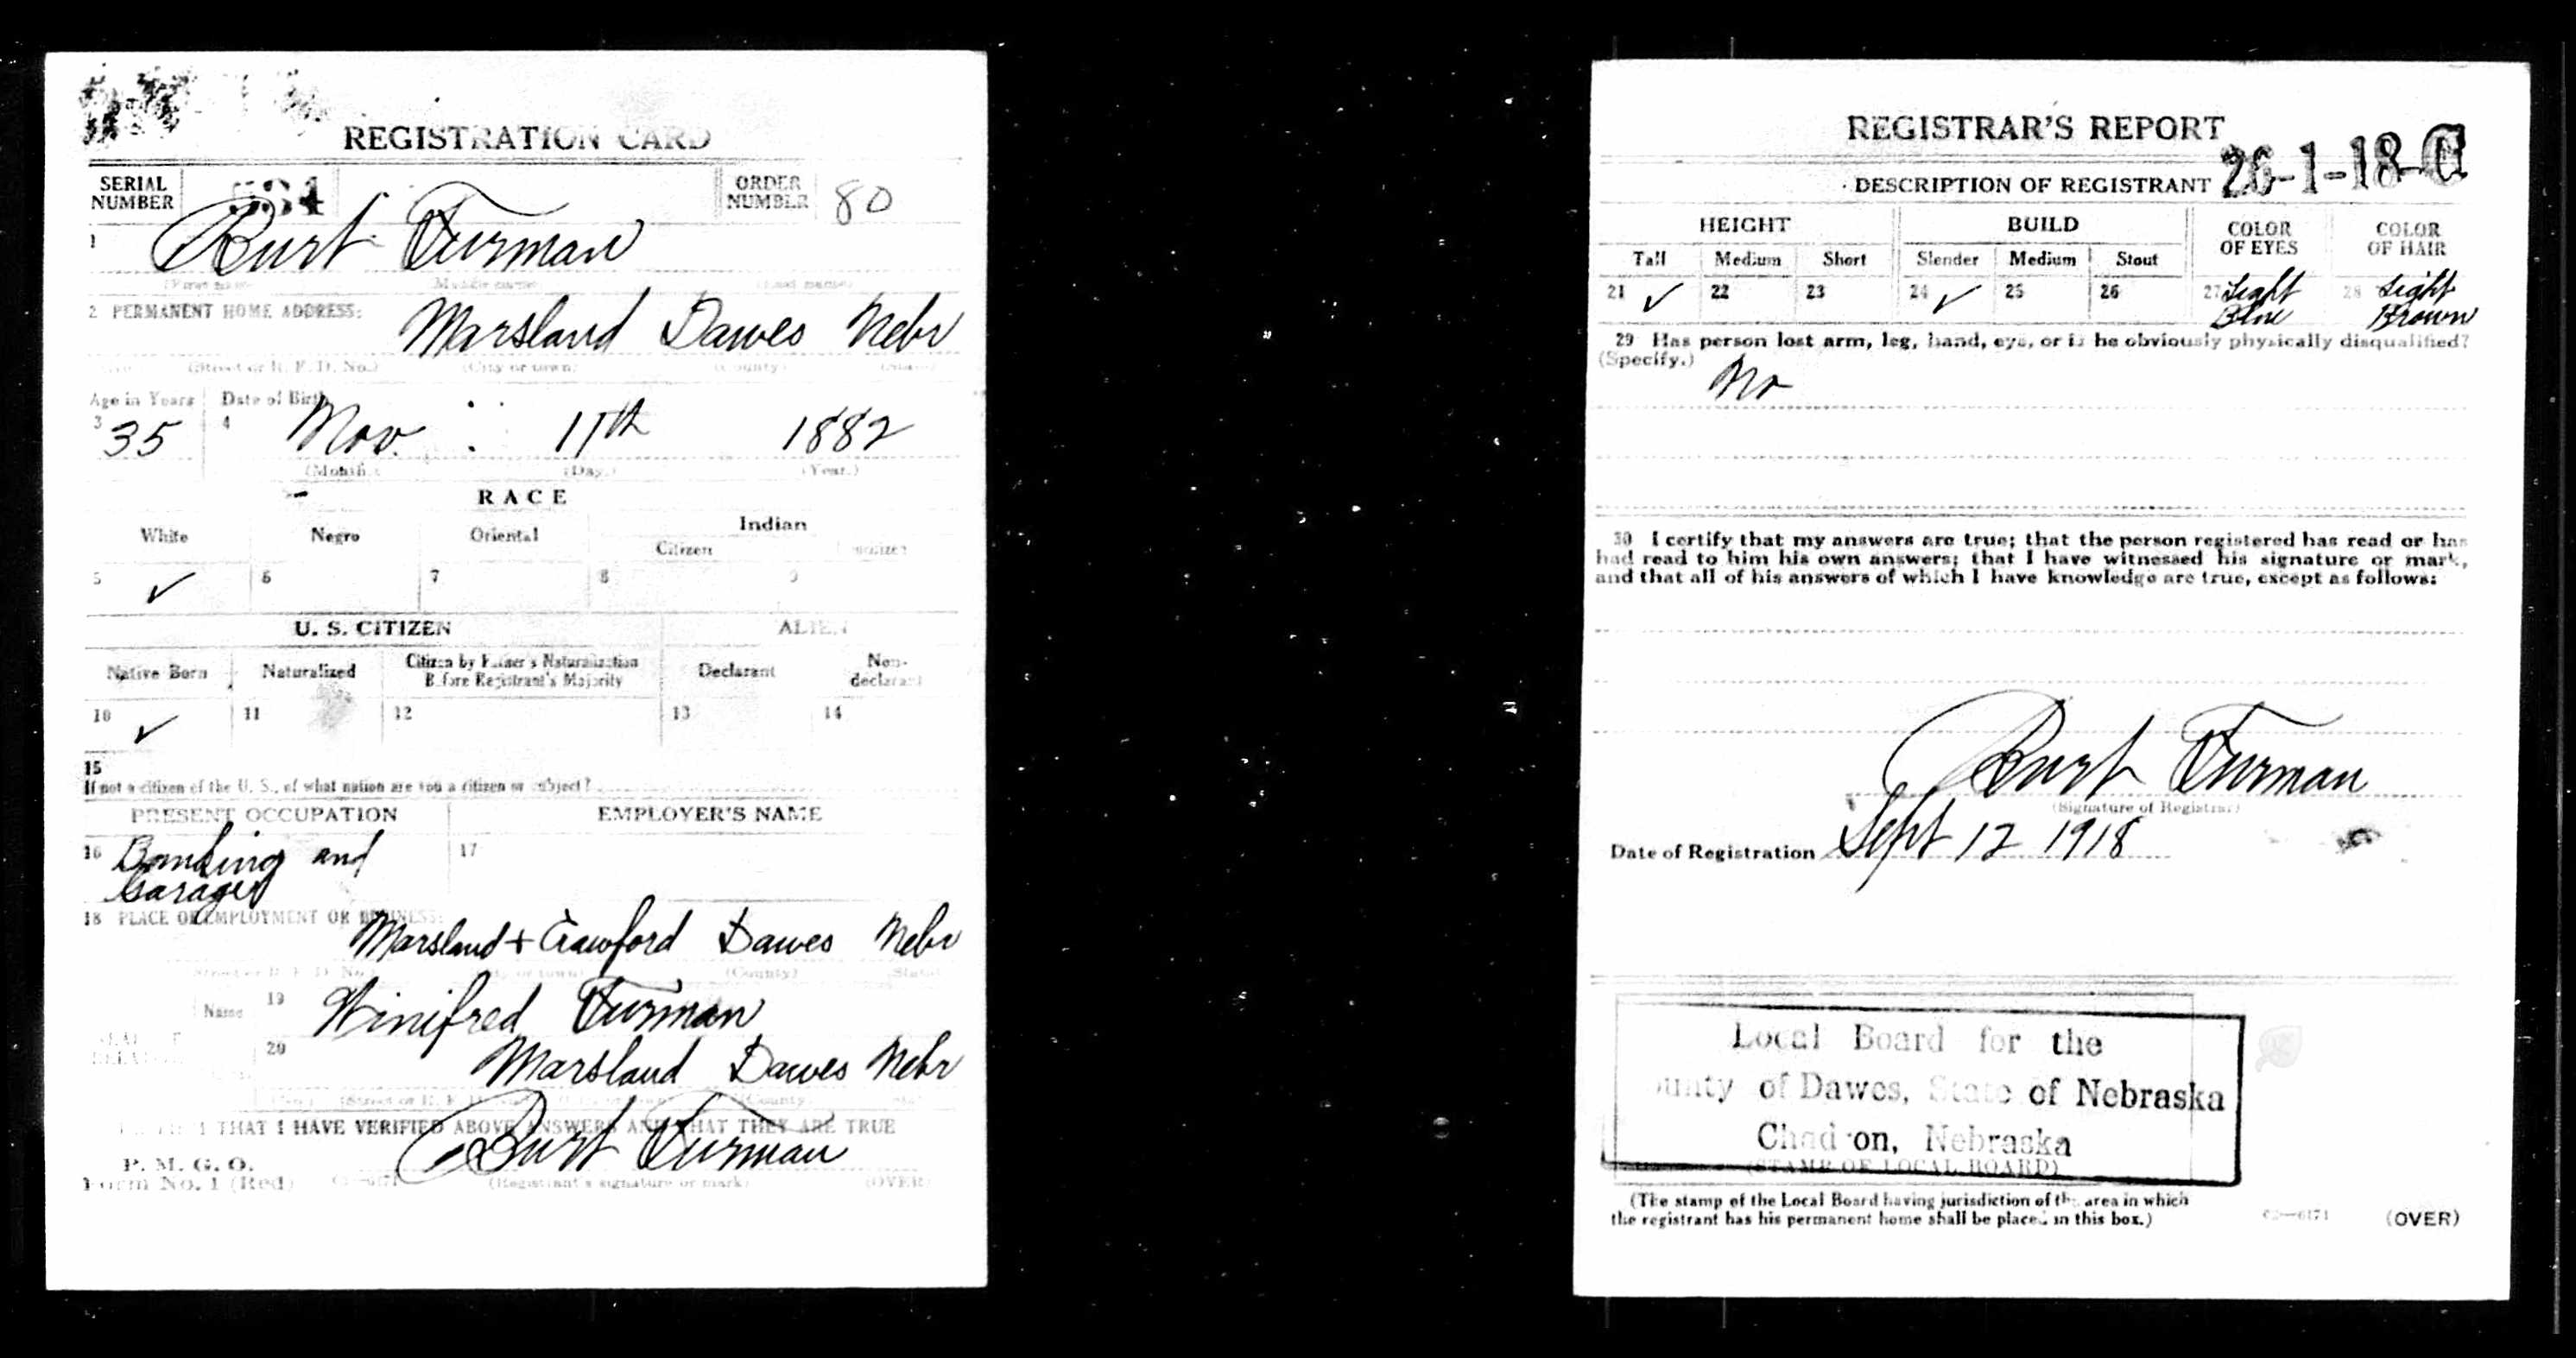 REGISTRATION CARD
SERIAL NUMBER 534 ORDER NUMBER 80
1 Burt Furman
(First name) (Middle name) (Last name)
2 PERMANENT HOME ADDRESS:
Marsland Dawes Nebr
(Street or R. F. D. No.) (City or town) (County) (State)
Age in Years Date of Birth
3 35 4 Nov. 11th 1882
(Month.) (Day.) (Year.)
RACE
White Negro Oriental Indian
Citizen
5 ✓ 6 7 8 9
U. S. CITIZEN ALIEN
Native Born Naturalized Citizen by Father's Naturalization Before Registrant's Majority Declarant Non-declarant
10 ✓ 11 12 13 14
15
If not a citizen of the U. S., of what nation are you a citizen or subject?
PRESENT OCCUPATION EMPLOYER'S NAME
16 Banking and 17
Garage
18 PLACE OF EMPLOYMENT OR BUSINESS:
Marsland + Crawford Dawes Nebr
(County) (State)
Name 19 Winifred Furman
20 Marsland Dawes Nebr
(Street or R. F. D. No.) (County)
THAT I HAVE VERIFIED ABOVE ANSWERS AND THAT THEY ARE TRUE
P. M. G. O.
Form No. 1 (Red)
Burt Furman
(Registrant's signature or mark) (OVER)
REGISTRAR'S REPORT
26-1-18-C
DESCRIPTION OF REGISTRANT
HEIGHT BUILD COLOR OF EYES COLOR OF HAIR
Tall Medium Short Slender Medium Stout
21 ✓ 22 23 24 ✓ 25 26 27 Light Blue 28 Light Brown
29 Has person lost arm, leg, hand, eye, or is he obviously physically disqualified?
(Specify.)
No
30 I certify that my answers are true; that the person registered has read or has
had read to him his own answers; that I have witnessed his signature or mark,
and that all of his answers of which I have knowledge are true, except as follows:
Burt Furman
(Signature of Registrar)
Date of Registration Sept 12 1918
Local Board for the
County of Dawes, State of Nebraska
Chadron, Nebraska
(STAMP OF LOCAL BOARD)
(The stamp of the Local Board having jurisdiction of the area in which
the registrant has his permanent home shall be placed in this box.)
(OVER)